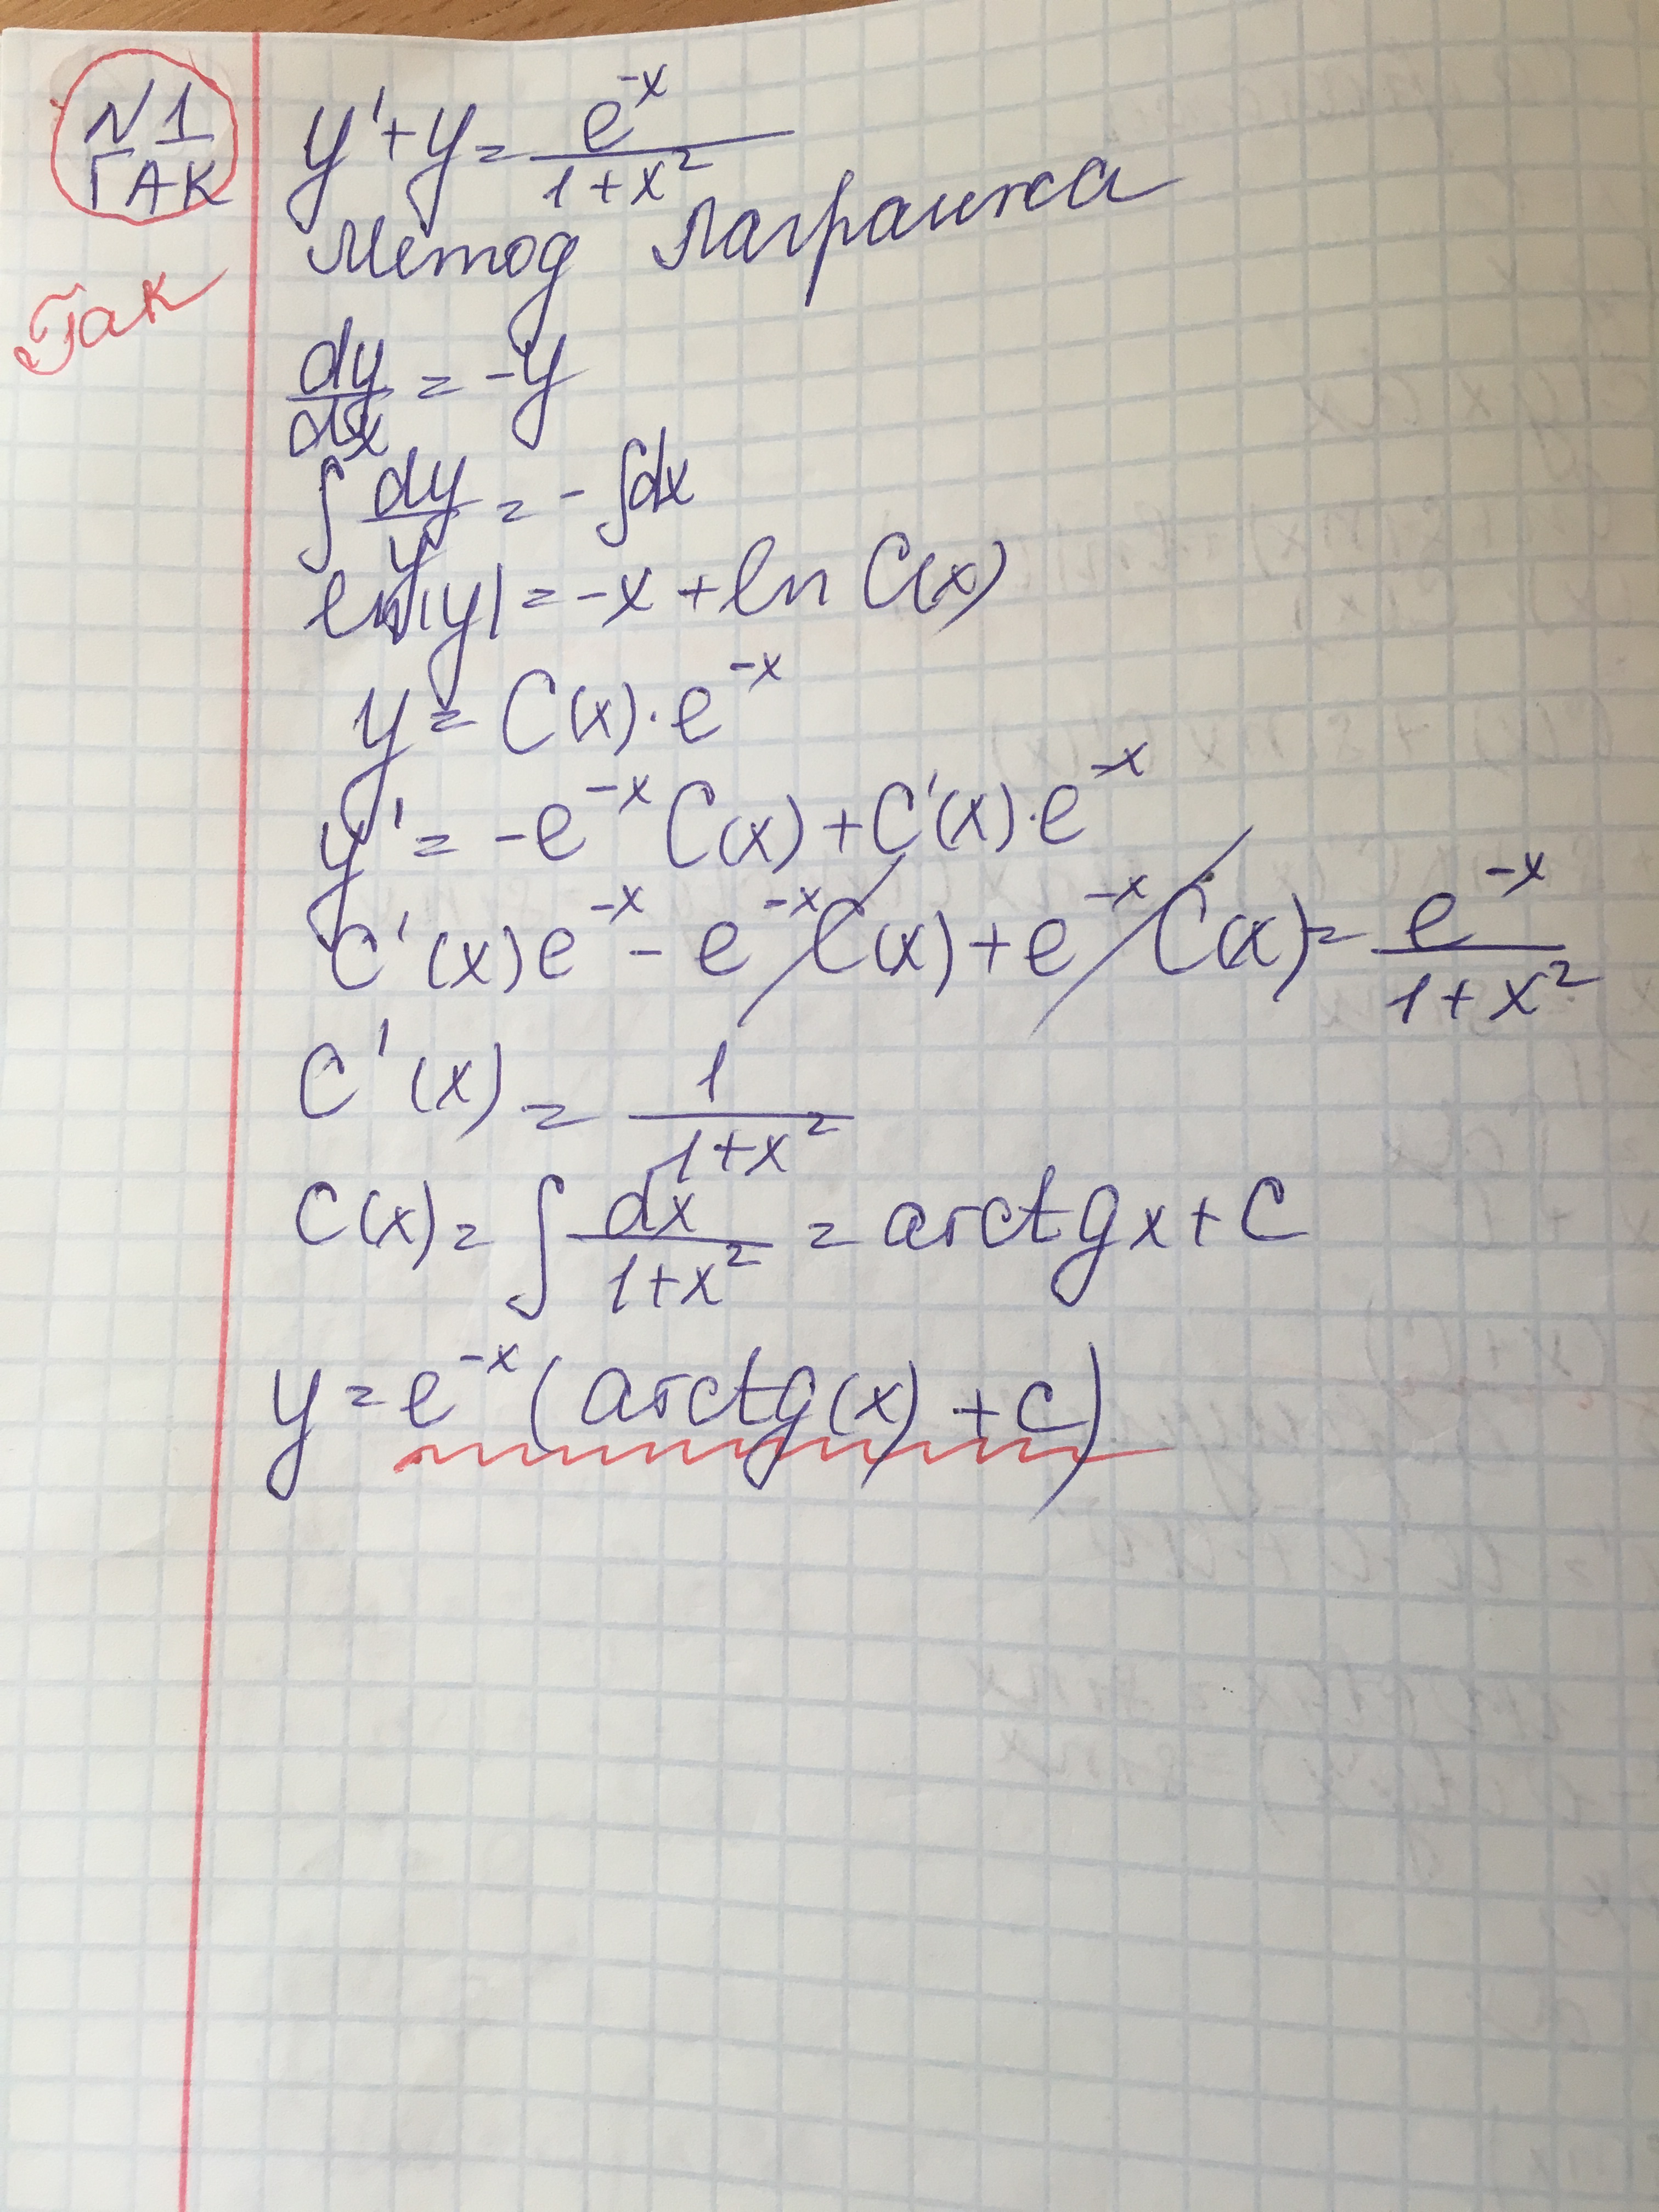 N1
ГАК
Гак
y' + y = e^{-x} / (1+x²)
Метод Лагранжа
dy/dx = -y
∫ dy/y = - ∫dx
ln|y| = -x + ln C(x)
y = C(x)·e^{-x}
y' = -e^{-x} C(x) + C'(x)·e^{-x}
C'(x) e^{-x} - e^{-x} C(x) + e^{-x} C(x) = e^{-x} / (1+x²)
C'(x) = 1 / (1+x²)
C(x) = ∫ dx / (1+x²) = arctg x + C
y = e^{-x} (arctg(x) + C)